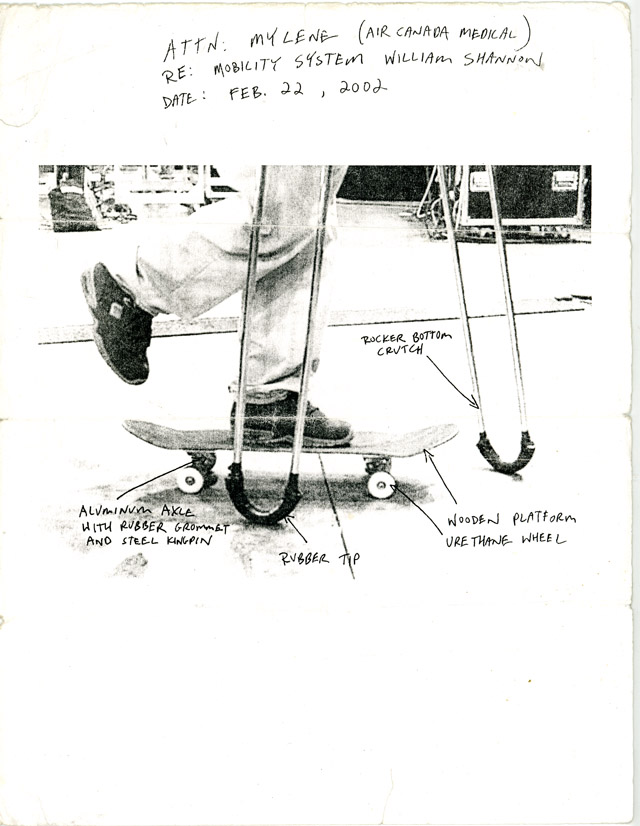 ATTN: MYLENE (AIR CANADA MEDICAL)
RE: MOBILITY SYSTEM WILLIAM SHANNON
DATE: FEB. 22, 2002
ROCKER BOTTOM
CRUTCH
ALUMINUM AXLE
WITH RUBBER GROMMET
AND STEEL KINGPIN
RUBBER TIP
WOODEN PLATFORM
URETHANE WHEEL